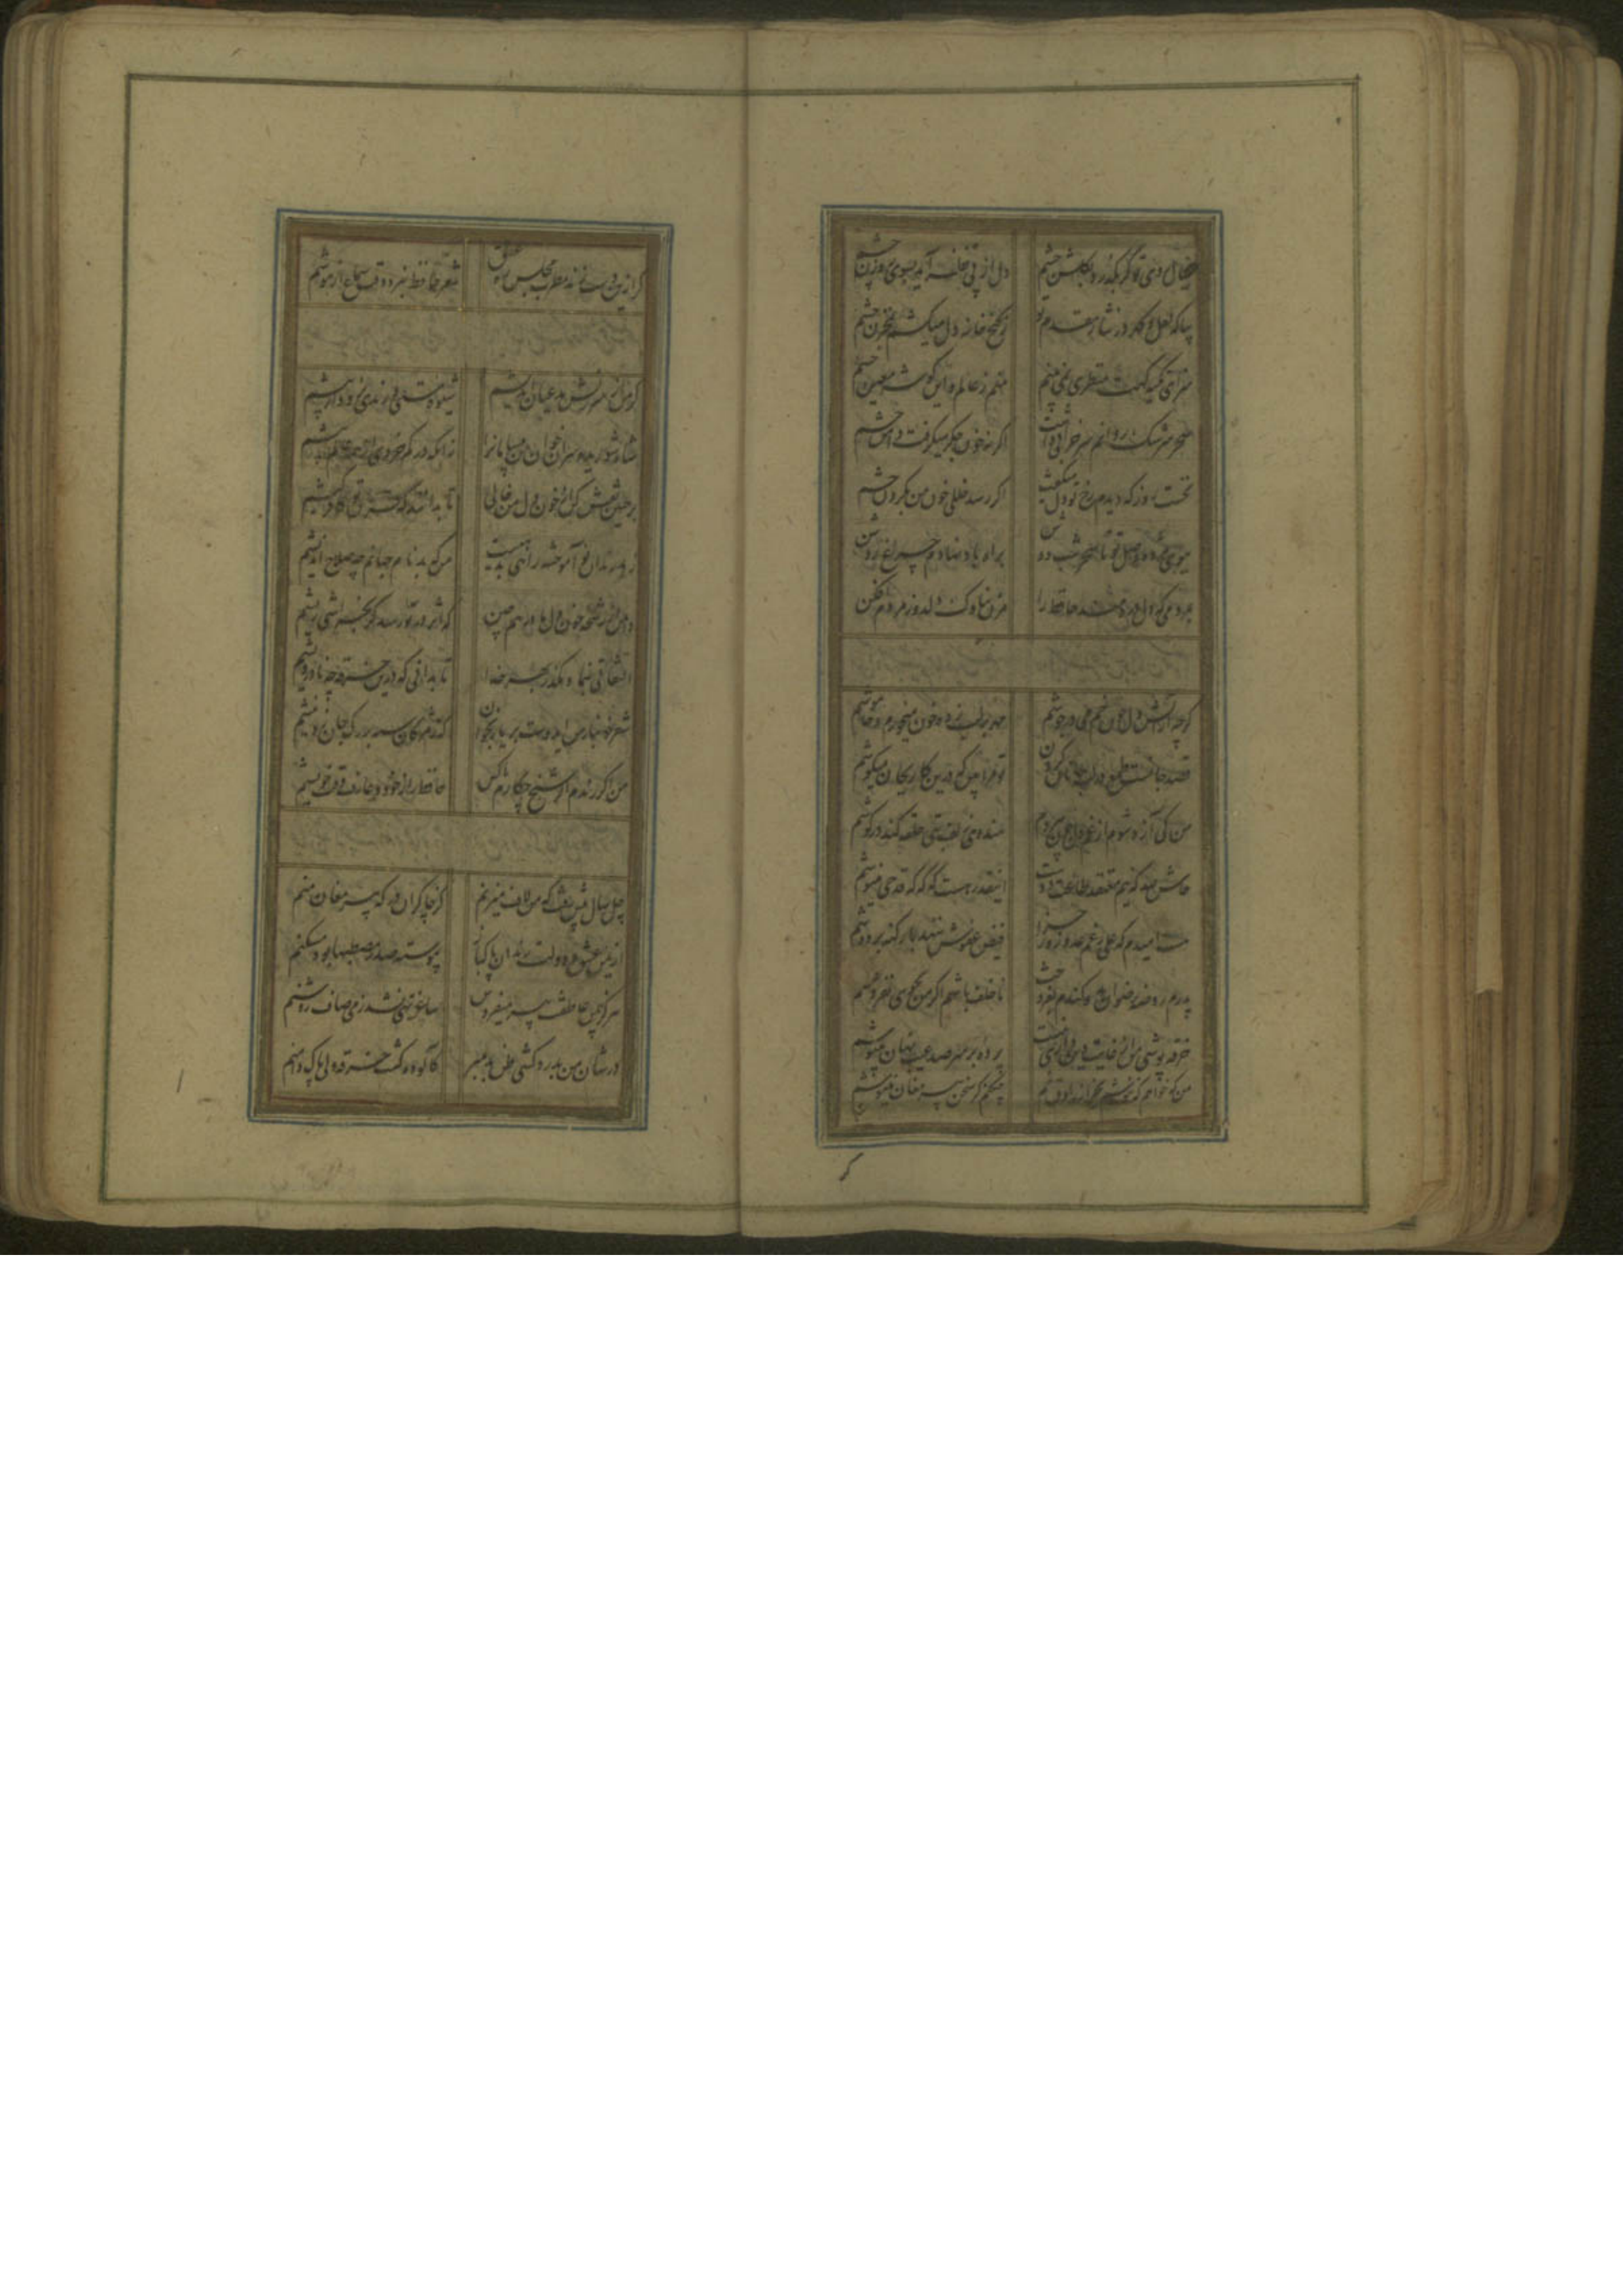 خیال روی تو گر بگذرد بگلشن چشم
دل از پی نظر آید بسوی روزن چشم
بیا که لعل و گهر در نثار مقدم تو
ز گنج خانه دل میکشم بمخزن چشم
سزای تکیه گهت منظری نمی بینم
منم ز عالم و این گوشه معین چشم
سحر سرشک روانم سر خرابی داشت
اگر نه خون جگر میگرفت دامن چشم
نخست روز که دیدم رخ تو دل میگفت
اگر رسد خللی خون من بگردن چشم
ببوی مژده وصل تو تا سحر شب دوش
براه باد نهادم چراغ روشن
بمردمی که دل دردمند حافظ را
مزن بناوک دلدوز مردم افکن
گرچه از آتش دل چون خم می در جوشم
مهر بر لب زده خون میخورم و خاموشم
قصد جانست طمع در لب جانان کردن
تو مرا بین که درین کار بجان میکوشم
من کی آزاد شوم از غم دل چون هر دم
هندوی زلف بتی حلقه کند در گوشم
حاش لله که نیم معتقد طاعت دوست
اینقدر هست که گه گه قدحی مینوشم
هست امیدم که علی رغم عدو روز جزا
فیض عفوش ننهد بار گنه بر دوشم
پدرم روضه رضوان بدو گندم بفروخت
ناخلف باشم اگر من بجوی نفروشم
خرقه پوشی من از غایت دین داری نیست
پرده بر سر صد عیب نهان میپوشم
من که خواهم که ننوشم بجز از راوق خم
چکنم گر سخن پیر مغان ننیوشم
گر
گر ازین دست زند مطرب مجلس ره عشق
شعر حافظ ببرد وقت سماع از هوشم
گر من از سرزنش مدعیان اندیشم
شیوه مستی و رندی نرود از پیشم
زانکه در کم خردی از همه عالم بیشم
بر جبین نقش کن از خون دل من خالی
تا بدانند که قربان تو کافر کیشم
زهد رندان نوآموخته راهی بدهیست
من که بدنام جهانم چه صلاح اندیشم
دامن از رشحه خون دل ما در هم چین
که اثر در تو رسد گر بخراشی ریشم
اعتقادی بنما و بگذر بهر خدا
تا بدانی که درین خرقه چه نادرویشم
شعر خونبار من ای دوست بر یار بخوان
که ز مژگان سیه بر رگ جان زد نیشم
من اگر رندم اگر شیخ چکارم با کس
حافظ راز خود و عارف وقت خویشم
چل سال بیش رفت که من لاف میزنم
کز چاکران درگه پیر مغان منم
از یمن عشق و دولت رندان پاکباز
پیوسته صدر مصطبها بود مسکنم
هرگز بیمن عاطفت پیر میفروش
ساغر تهی نشد ز می صاف روشنم
در شان من بدرد کشی ظن بد مبر
کالوده گشت خرقه ولی پاک دامنم